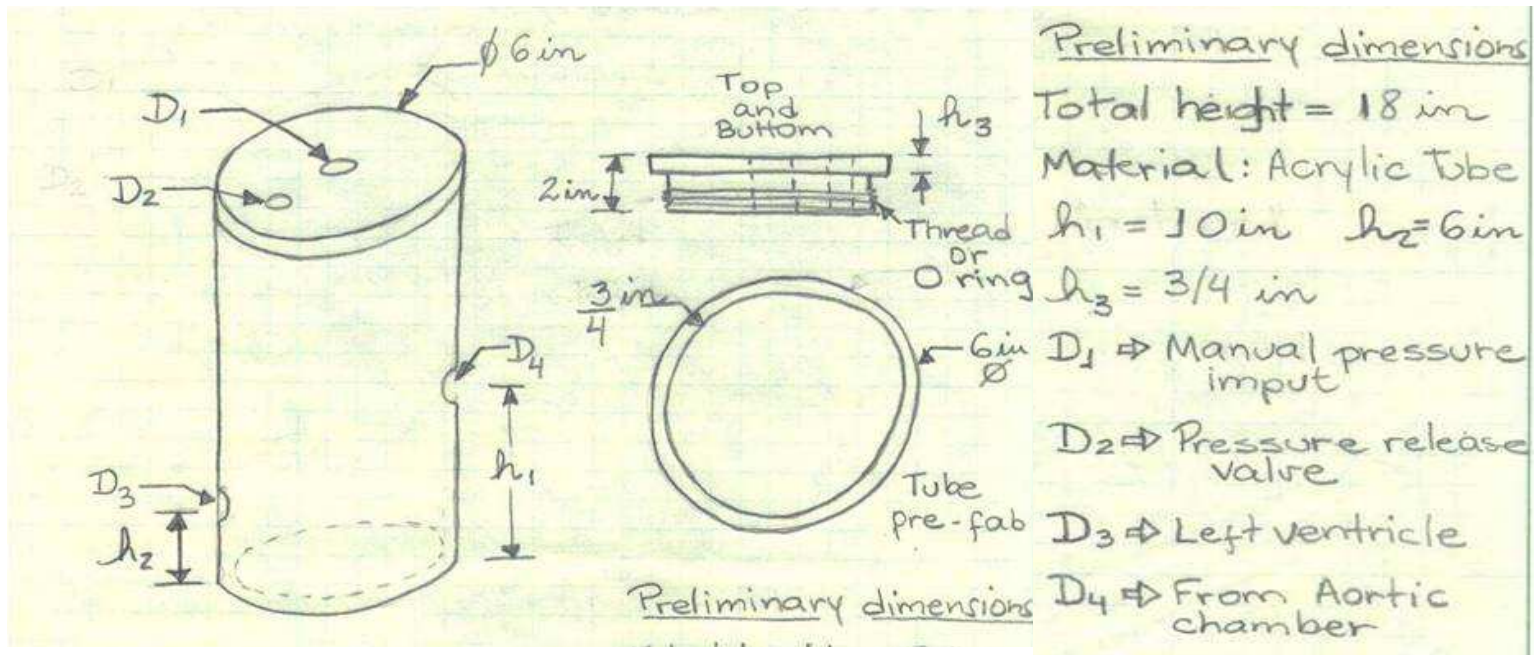 ϕ 6 in
D₁
D₂
D₄
h₁
D₃
h₂
Top
and
Buttom
h₃
2in
Thread
or
O ring
3/4 in
6in
Ø
Tube
pre-fab
Preliminary dimensions
Preliminary dimensions
Total height = 18 in
Material: Acrylic Tube
h₁ = 10 in h₂= 6 in
h₃ = 3/4 in
D₁ ⇨ Manual pressure
imput
D₂ ⇨ Pressure release
valve
D₃ ⇨ Left ventricle
D₄ ⇨ From Aortic
chamber